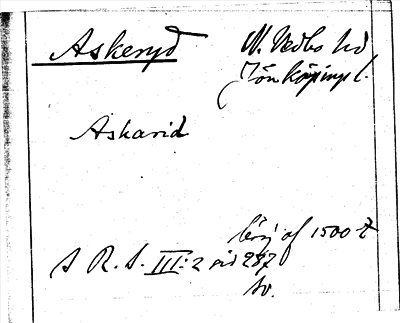 Askeryd N. Vedbo hd
Jönköpings l.
Askarid
början af 1500 t
S R. S. III:2 sid 287
Sv.